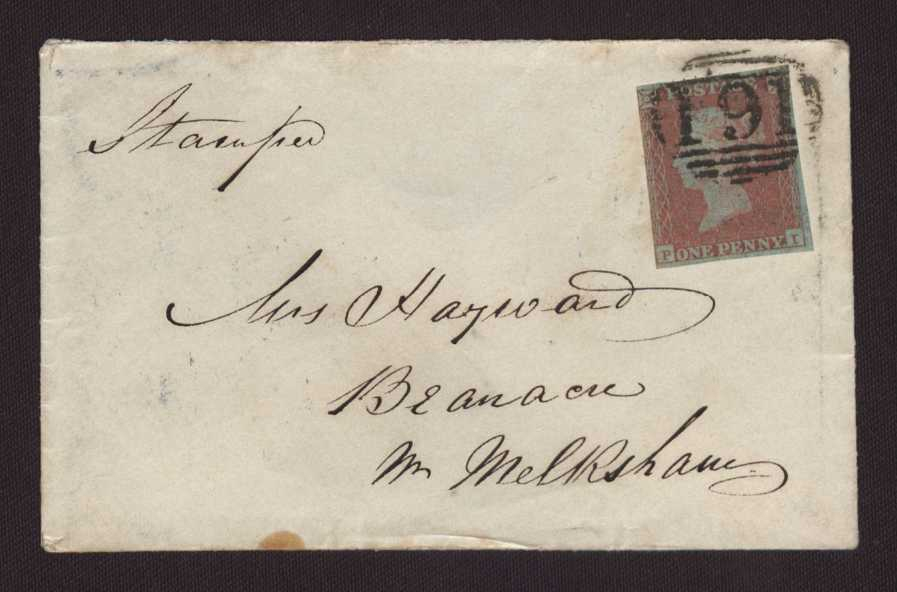 Stamped
POSTAGE
191
P ONE PENNY I
Mrs Hayward
Beanacre
Nr Melksham